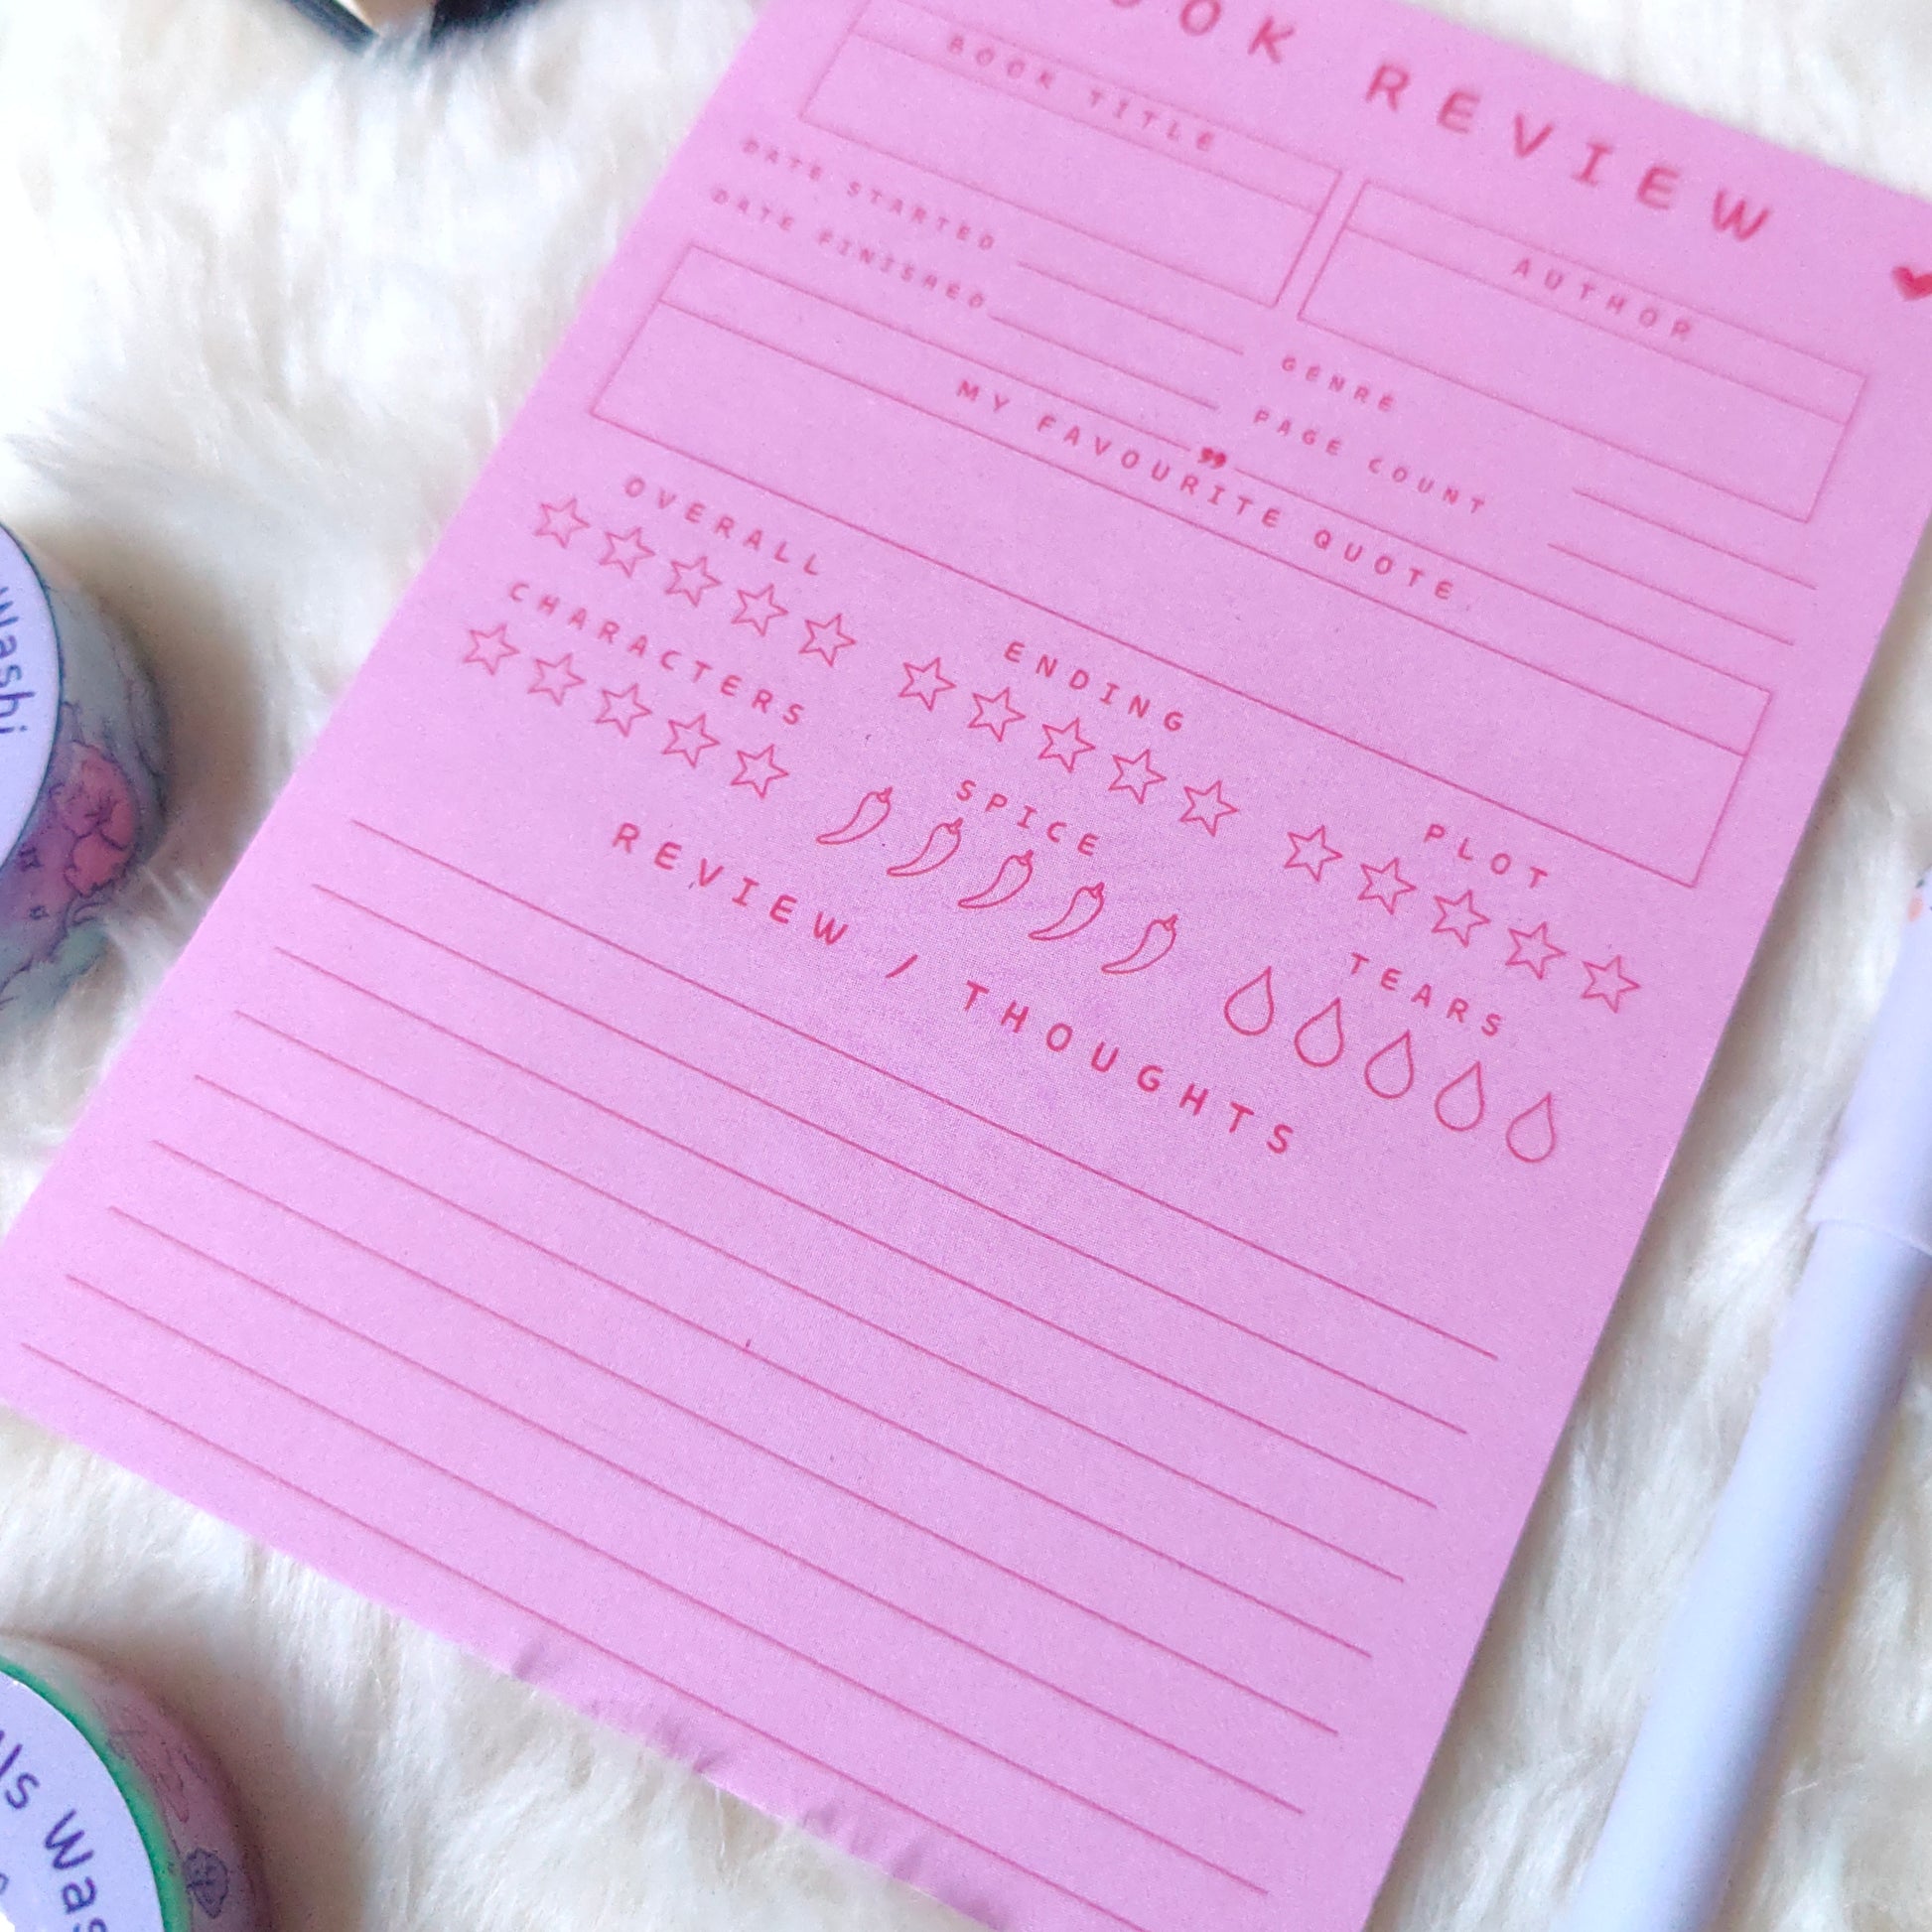 OOK REVIEW
BOOK TITLE
AUTHOR
DATE STARTED
GENRE
DATE FINISHED
PAGE COUNT
MY FAVOURITE QUOTE
OVERALL
ENDING
PLOT
CHARACTERS
SPICE
TEARS
REVIEW / THOUGHTS
Washi